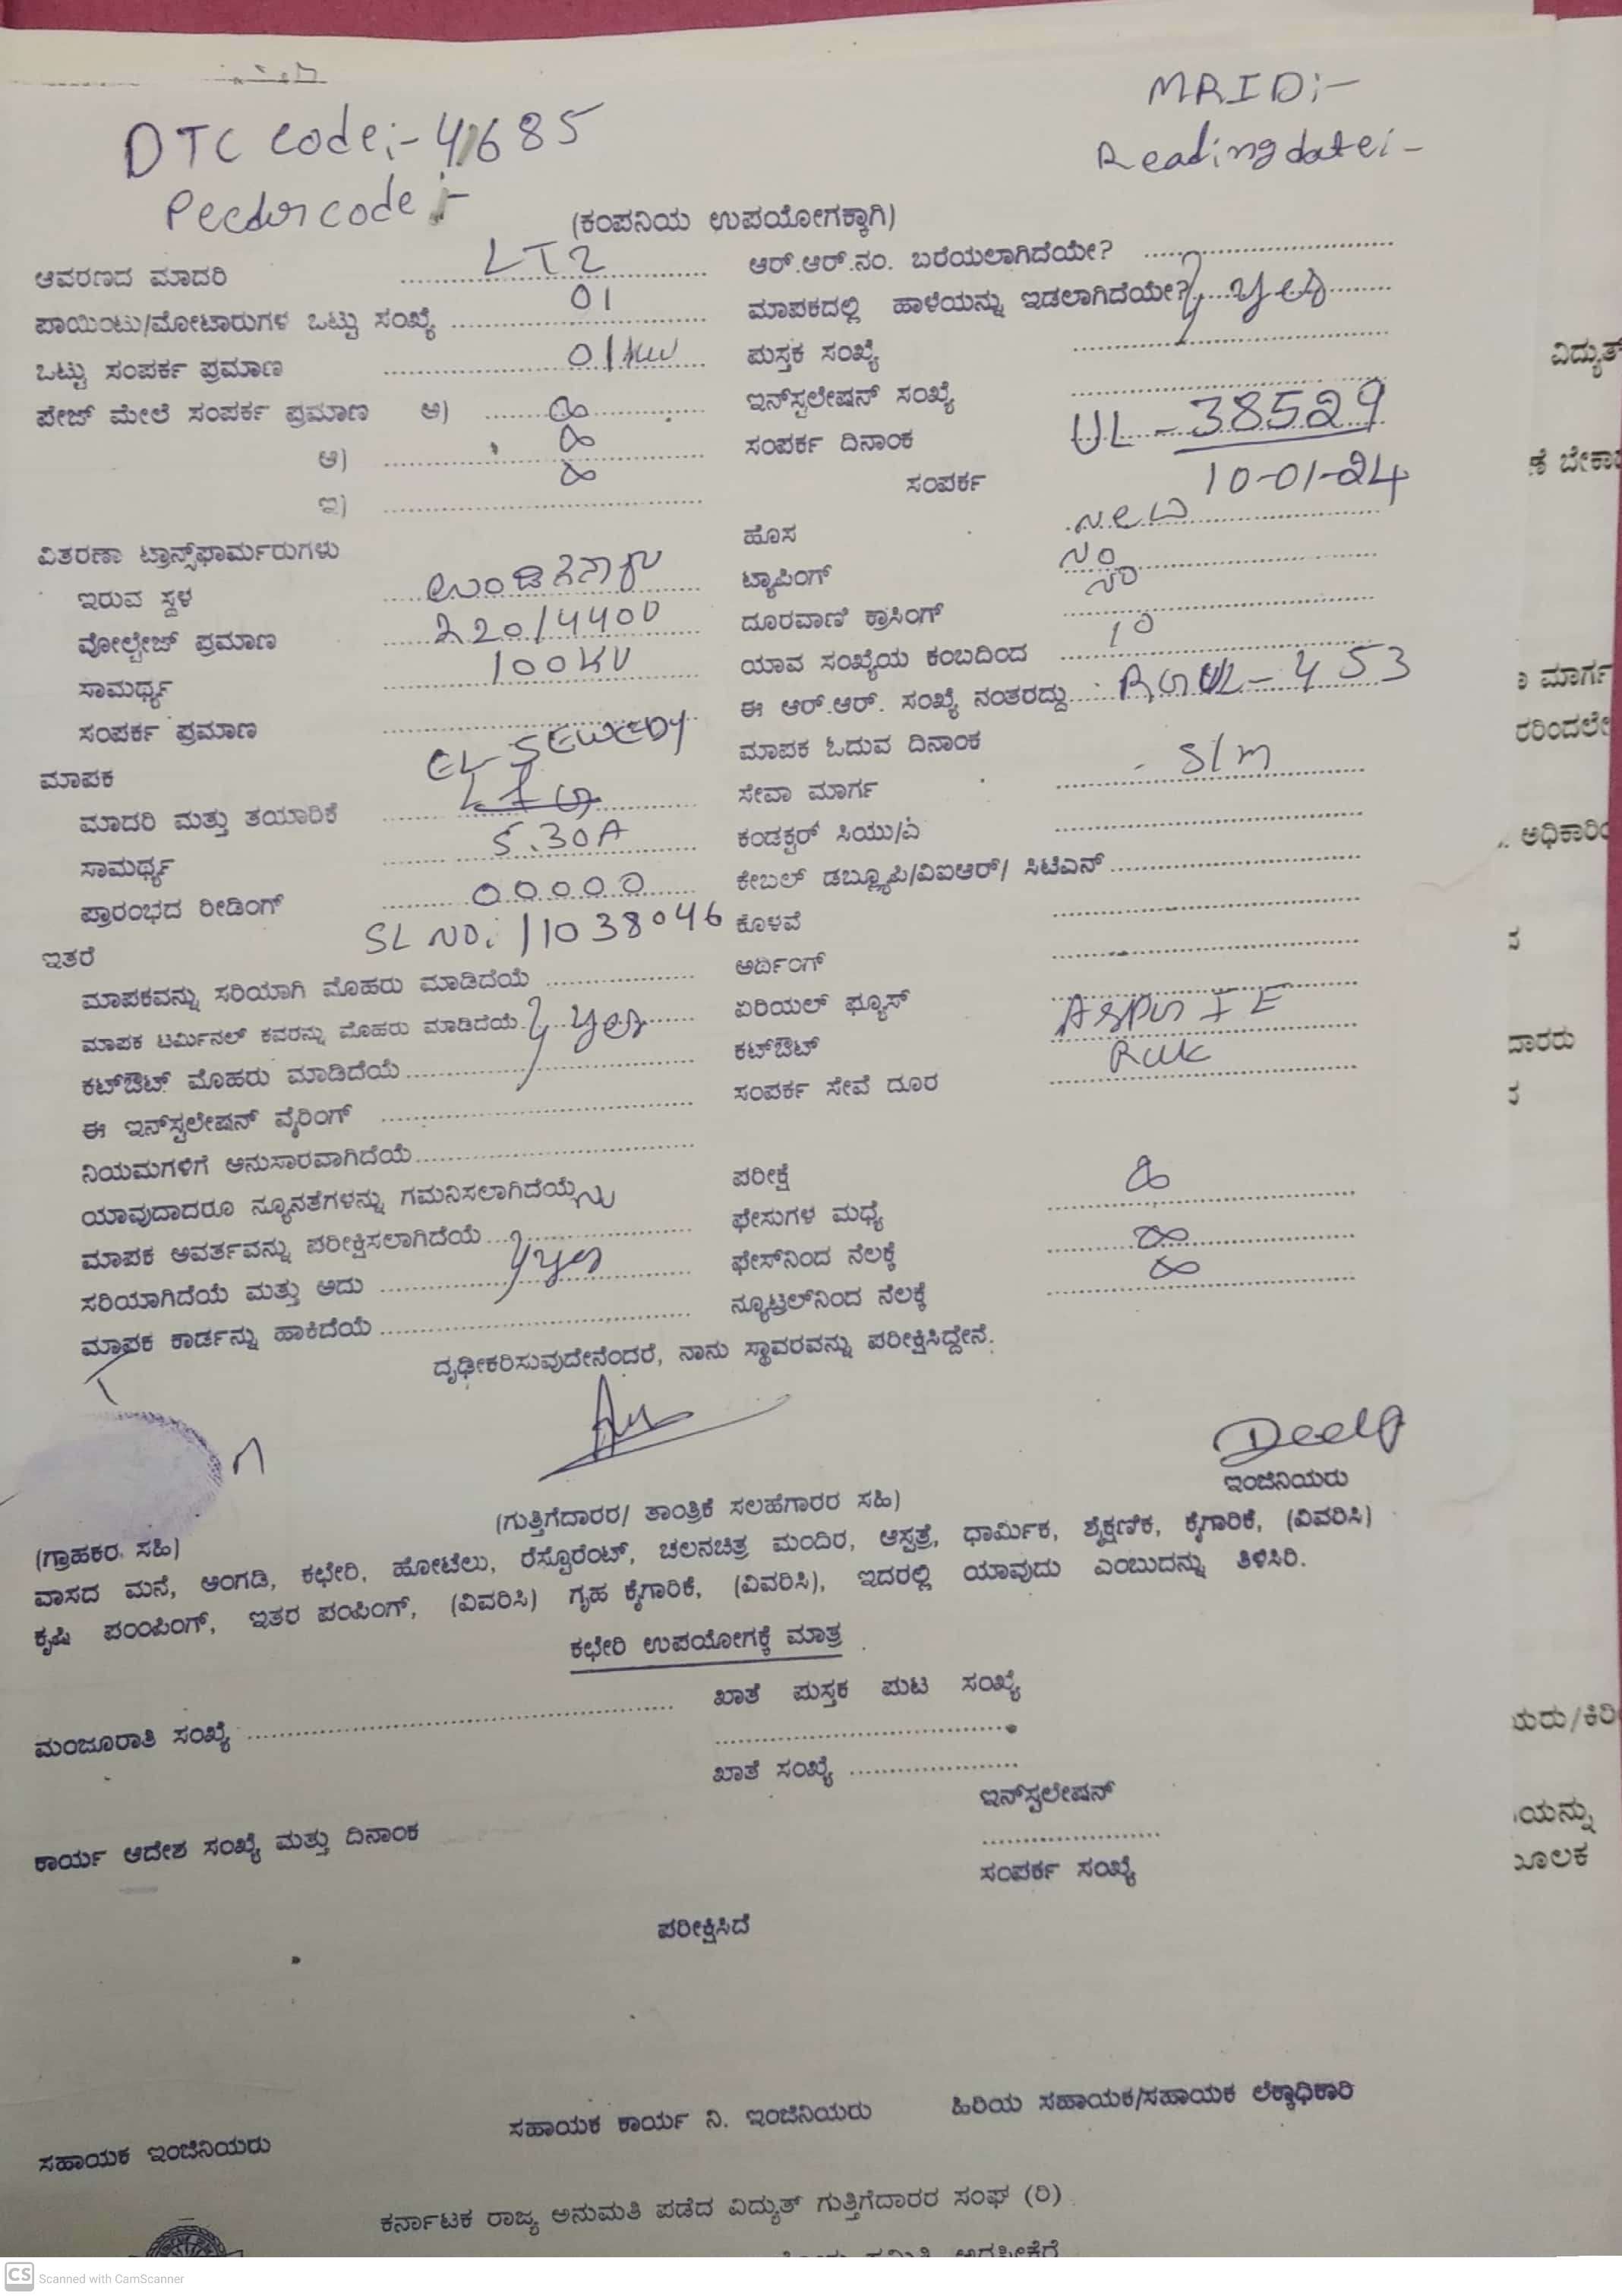 MRID:-
DTC Code:- 41685
Reading date:-
code :-
(ಕಂಪನಿಯ ಉಪಯೋಗಕ್ಕಾಗಿ)
ಆವರಣದ ಮಾದರಿ LT2
ಪಾಯಿಂಟು/ಮೋಟಾರುಗಳ ಒಟ್ಟು ಸಂಖ್ಯೆ 01
ಒಟ್ಟು ಸಂಪರ್ಕ ಪ್ರಮಾಣ
ಪೇಜ್ ಮೇಲೆ ಸಂಪರ್ಕ ಪ್ರಮಾಣ ಅ) ∞
ಆ) ∞
ಇ) ∞
ವಿತರಣಾ ಟ್ರಾನ್ಸ್‌ಫಾರ್ಮರುಗಳು
ಇರುವ ಸ್ಥಳ
ವೋಲ್ಟೇಜ್ ಪ್ರಮಾಣ 220/440V
ಸಾಮರ್ಥ್ಯ 100KV
ಸಂಪರ್ಕ ಪ್ರಮಾಣ
ಮಾಪಕ EL-SEWEDY
ಮಾದರಿ ಮತ್ತು ತಯಾರಿಕೆ
ಸಾಮರ್ಥ್ಯ 5.30A
ಪ್ರಾರಂಭದ ರೀಡಿಂಗ್ 00000
ಇತರೆ SL NO: 11038046
ಮಾಪಕವನ್ನು ಸರಿಯಾಗಿ ಮೊಹರು ಮಾಡಿದೆಯೆ
ಮಾಪಕ ಟರ್ಮಿನಲ್ ಕವರನ್ನು ಮೊಹರು ಮಾಡಿದೆಯೆ } yes
ಕಟ್‌ಔಟ್ ಮೊಹರು ಮಾಡಿದೆಯೆ
ಈ ಇನ್‌ಸ್ಟಲೇಷನ್ ವೈರಿಂಗ್
ನಿಯಮಗಳಿಗೆ ಅನುಸಾರವಾಗಿದೆಯೆ
ಯಾವುದಾದರೂ ನ್ಯೂನತೆಗಳನ್ನು ಗಮನಿಸಲಾಗಿದೆಯೆ
ಮಾಪಕ ಅವರ್ತವನ್ನು ಪರೀಕ್ಷಿಸಲಾಗಿದೆಯೆ
ಸರಿಯಾಗಿದೆಯೆ ಮತ್ತು ಅದು } yes
ಮಾಪಕ ಕಾರ್ಡನ್ನು ಹಾಕಿದೆಯೆ
ಆರ್.ಆರ್.ನಂ. ಬರೆಯಲಾಗಿದೆಯೇ?
ಮಾಪಕದಲ್ಲಿ ಹಾಳೆಯನ್ನು ಇಡಲಾಗಿದೆಯೇ? } yes
ಪುಸ್ತಕ ಸಂಖ್ಯೆ
ಇನ್‌ಸ್ಟಲೇಷನ್ ಸಂಖ್ಯೆ
ಸಂಪರ್ಕ ದಿನಾಂಕ UL-38529
ಸಂಪರ್ಕ 10-01-24
ಹೊಸ New
ಟ್ಯಾಪಿಂಗ್ No
ದೂರವಾಣಿ ಕ್ರಾಸಿಂಗ್ No
ಯಾವ ಸಂಖ್ಯೆಯ ಕಂಬದಿಂದ 10
ಈ ಆರ್.ಆರ್. ಸಂಖ್ಯೆ ನಂತರದ್ದು 453
ಮಾಪಕ ಓದುವ ದಿನಾಂಕ
ಸೇವಾ ಮಾರ್ಗ S/m
ಕಂಡಕ್ಟರ್ ಸಿಯು/ಎ
ಕೇಬಲ್ ಡಬ್ಲ್ಯೂಪಿ/ವಿಐಆರ್/ ಸಿಟಿಎನ್
ಕೊಳವೆ
ಅರ್ಥಿಂಗ್
ಏರಿಯಲ್ ಫ್ಯೂಸ್
ಕಟ್‌ಔಟ್
ಸಂಪರ್ಕ ಸೇವೆ ದೂರ
ಪರೀಕ್ಷೆ ∞
ಫೇಸುಗಳ ಮಧ್ಯೆ
ಫೇಸ್‌ನಿಂದ ನೆಲಕ್ಕೆ ∞
ನ್ಯೂಟ್ರಲ್‌ನಿಂದ ನೆಲಕ್ಕೆ ∞
ದೃಢೀಕರಿಸುವುದೇನೆಂದರೆ, ನಾನು ಸ್ಥಾವರವನ್ನು ಪರೀಕ್ಷಿಸಿದ್ದೇನೆ.
ಇಂಜಿನಿಯರು
(ಗ್ರಾಹಕರ ಸಹಿ) (ಗುತ್ತಿಗೆದಾರರ/ ತಾಂತ್ರಿಕೆ ಸಲಹೆಗಾರರ ಸಹಿ)
ವಾಸದ ಮನೆ, ಅಂಗಡಿ, ಕಛೇರಿ, ಹೋಟೆಲು, ರೆಸ್ಟೊರೆಂಟ್, ಚಲನಚಿತ್ರ ಮಂದಿರ, ಆಸ್ಪತ್ರೆ, ಧಾರ್ಮಿಕ, ಶೈಕ್ಷಣಿಕ, ಕೈಗಾರಿಕೆ, (ವಿವರಿಸಿ)
ಕೃಷಿ ಪಂಂಪಿಂಗ್, ಇತರ ಪಂಪಿಂಗ್, (ವಿವರಿಸಿ) ಗೃಹ ಕೈಗಾರಿಕೆ, (ವಿವರಿಸಿ), ಇದರಲ್ಲಿ ಯಾವುದು ಎಂಬುದನ್ನು ತಿಳಿಸಿರಿ.
ಕಛೇರಿ ಉಪಯೋಗಕ್ಕೆ ಮಾತ್ರ
ಮಂಜೂರಾತಿ ಸಂಖ್ಯೆ ಖಾತೆ ಪುಸ್ತಕ ಪುಟ ಸಂಖ್ಯೆ
ಖಾತೆ ಸಂಖ್ಯೆ
ಇನ್‌ಸ್ಟಲೇಷನ್
ಕಾರ್ಯ ಆದೇಶ ಸಂಖ್ಯೆ ಮತ್ತು ದಿನಾಂಕ
ಸಂಪರ್ಕ ಸಂಖ್ಯೆ
ಪರೀಕ್ಷಿಸಿದೆ
ಸಹಾಯಕ ಇಂಜಿನಿಯರು ಸಹಾಯಕ ಕಾರ್ಯ ನಿ. ಇಂಜಿನಿಯರು ಹಿರಿಯ ಸಹಾಯಕ/ಸಹಾಯಕ ಲೆಕ್ಕಾಧಿಕಾರಿ
ಕರ್ನಾಟಕ ರಾಜ್ಯ ಅನುಮತಿ ಪಡೆದ ವಿದ್ಯುತ್ ಗುತ್ತಿಗೆದಾರರ ಸಂಘ (ರಿ)
CS Scanned with CamScanner